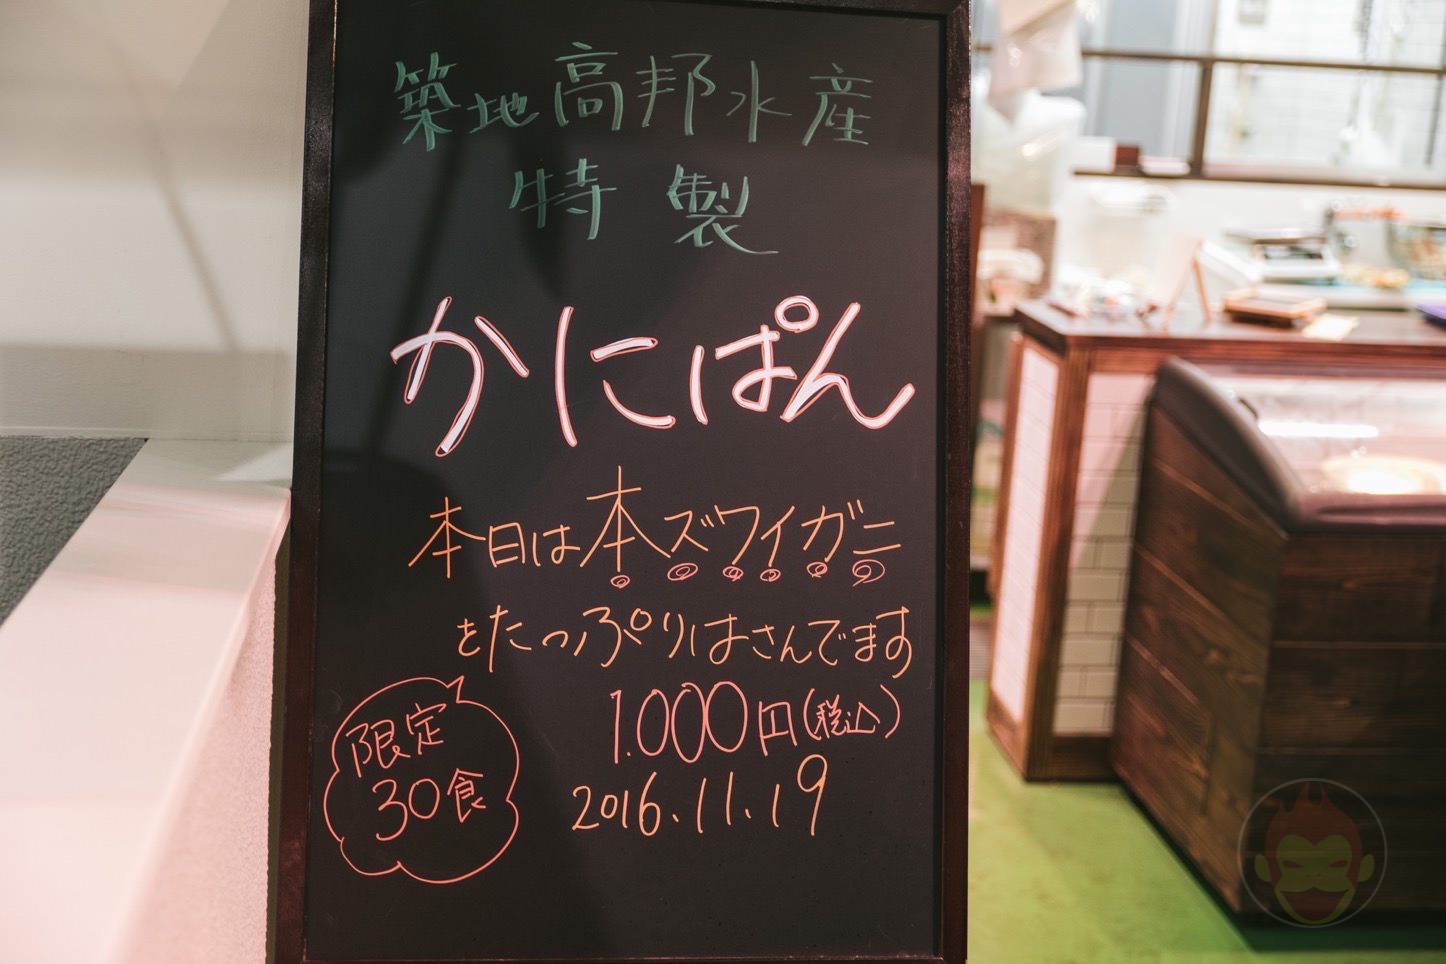 築地高邦水産
特製
かにぱん
本日は本ズワイガニ
をたっぷりはさんでます
1.000円(税込)
限定
30食
2016.11.19